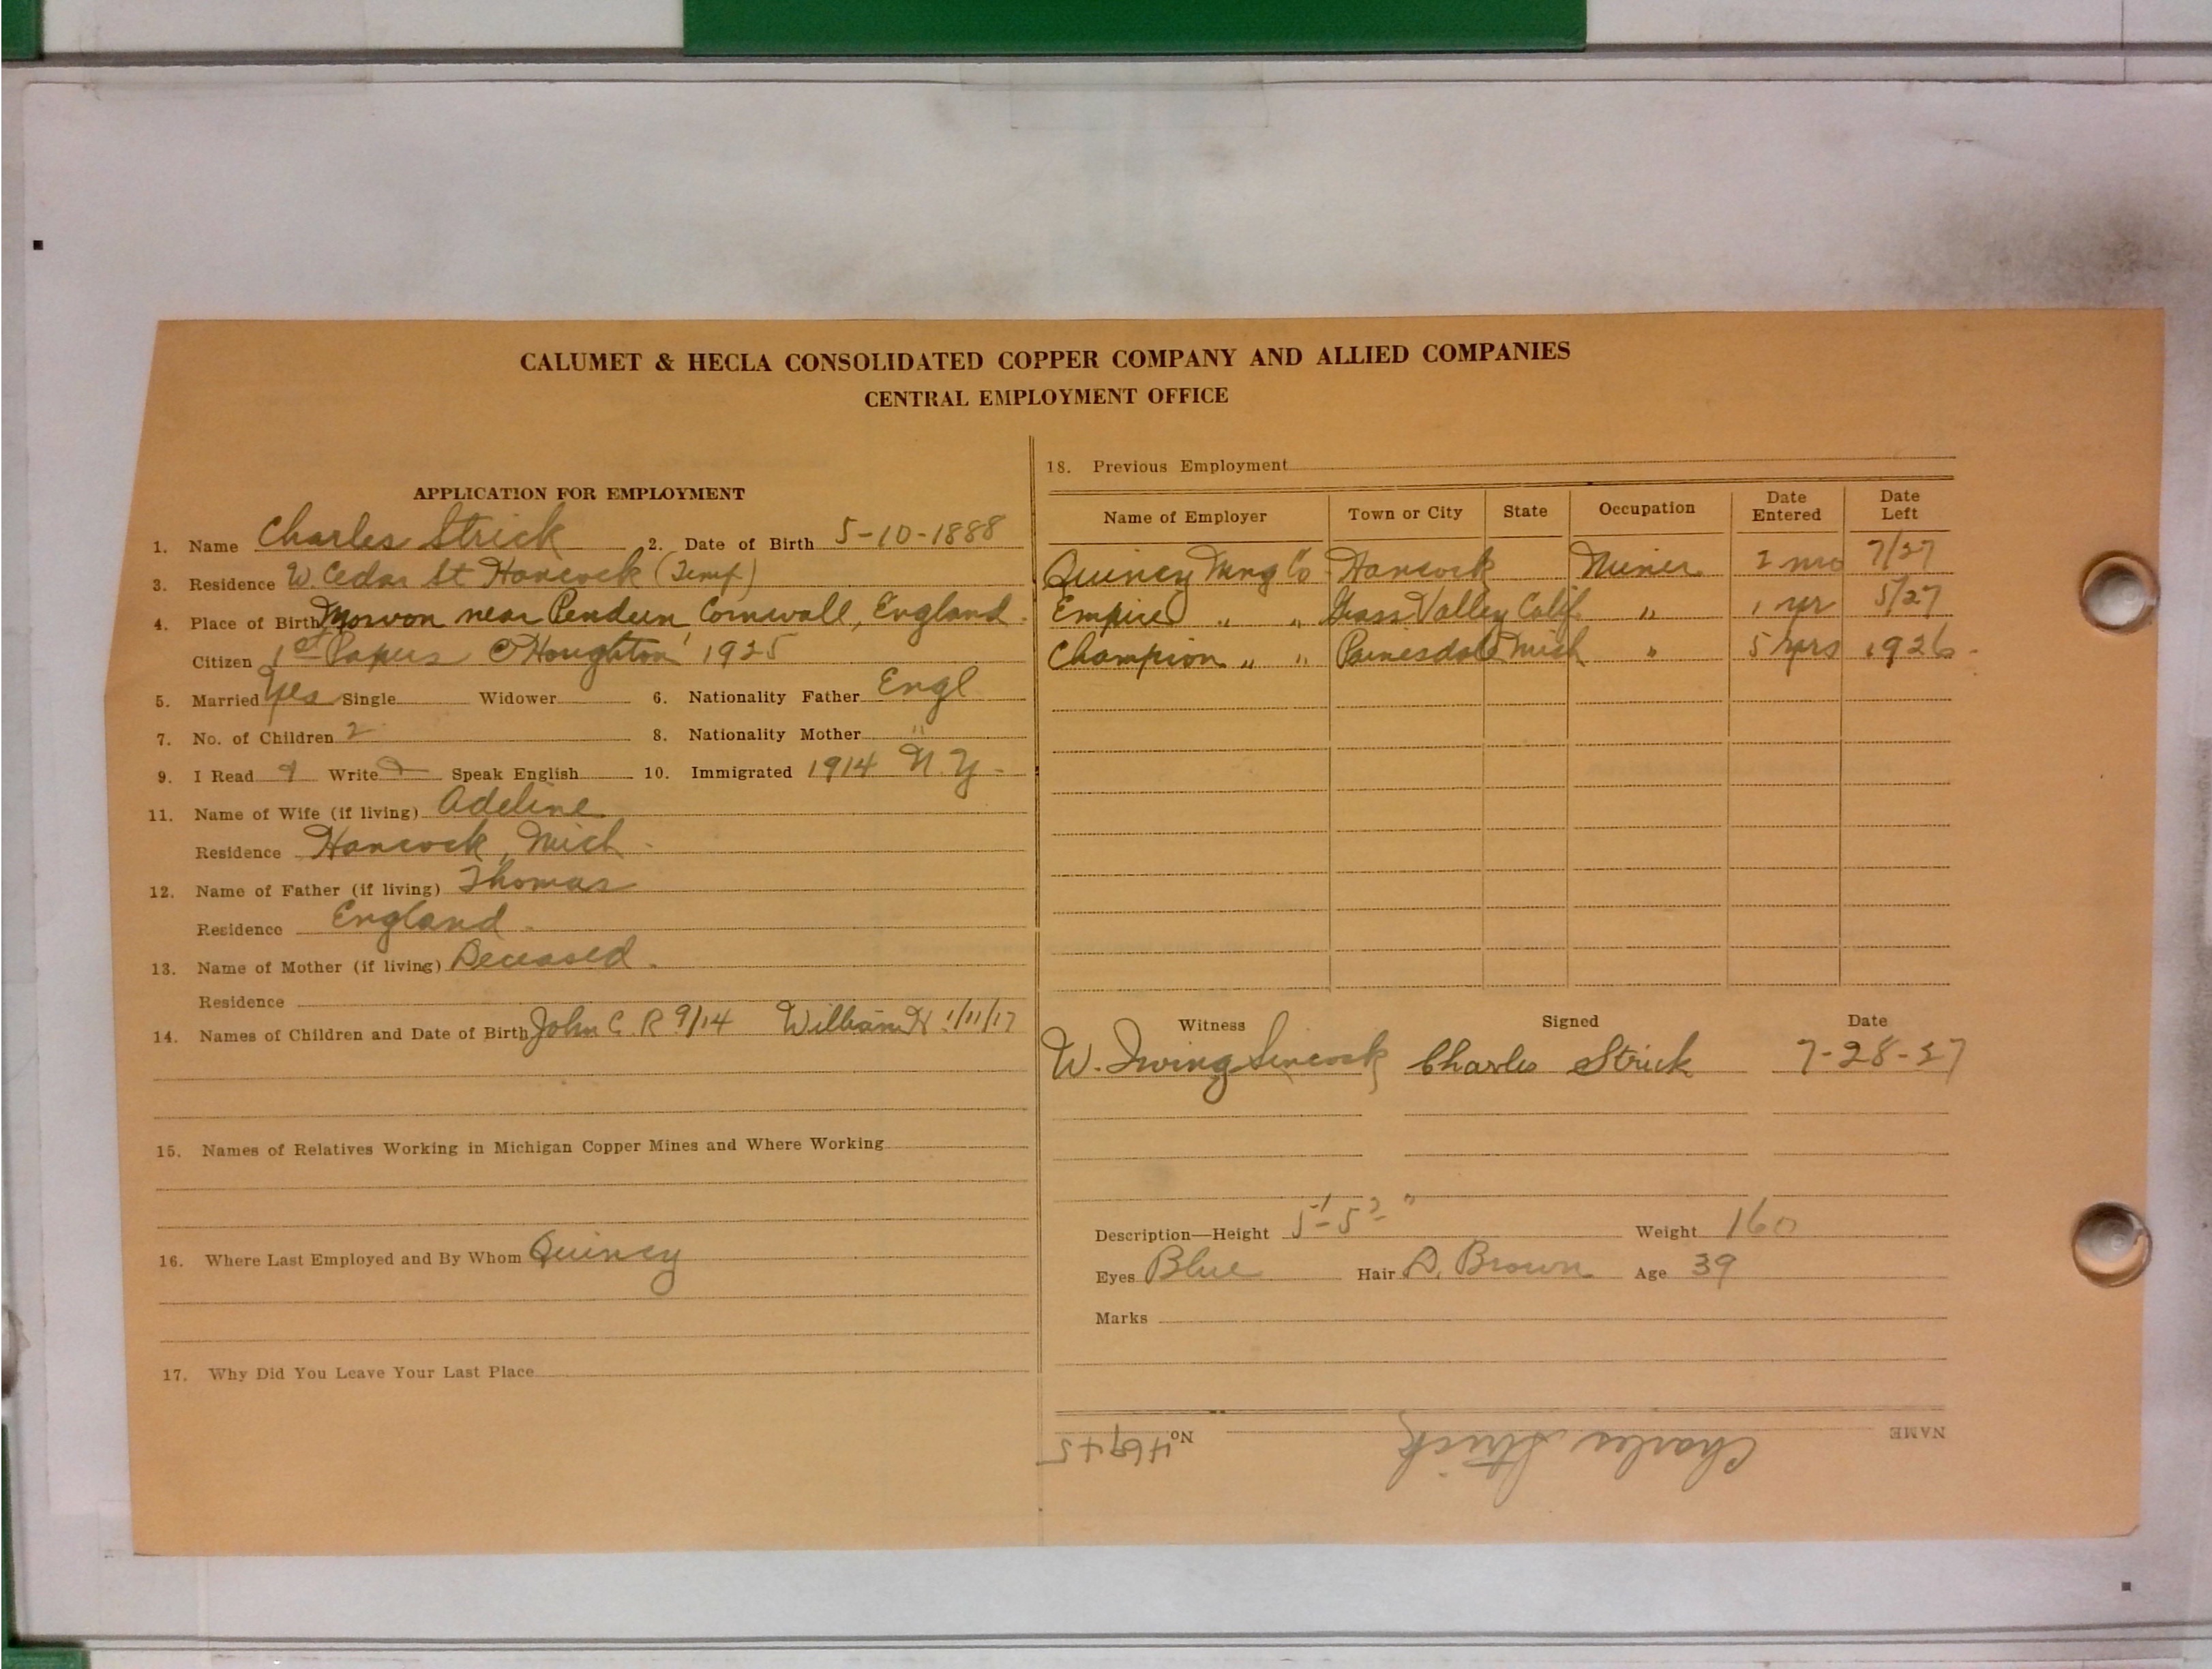 CALUMET & HECLA CONSOLIDATED COPPER COMPANY AND ALLIED COMPANIES
CENTRAL EMPLOYMENT OFFICE
APPLICATION FOR EMPLOYMENT
1. Name Charles Strick 2. Date of Birth 5-10-1888
3. Residence W. Cedar St Hancock (Temp)
4. Place of Birth Morvon near Pendeen Cornwall, England.
Citizen 1st Papers Houghton 1925
5. Married Yes Single Widower 6. Nationality Father Engl
7. No. of Children 2 8. Nationality Mother "
9. I Read Write Speak English 10. Immigrated 1914 N.Y.
11. Name of Wife (if living) Adeline
Residence Hancock, Mich.
12. Name of Father (if living) Thomas
Residence England.
13. Name of Mother (if living) Deceased.
Residence
14. Names of Children and Date of Birth John C R 9/14 William H 1/11/17
15. Names of Relatives Working in Michigan Copper Mines and Where Working
16. Where Last Employed and By Whom Quincy
17. Why Did You Leave Your Last Place
18. Previous Employment
Name of Employer Town or City State Occupation Date Entered Date Left
Quincy Mng Co Hancock Miner 2 mo 7/27
Empire " " Grass Valley Calif. " 1 yr 5/27
Champion " " Painesdale Mich " 5 yrs 1926
Witness Signed Date
W. Irving Charles Strick 7-28-27
Description—Height 5'-5 " Weight 160
Eyes Blue Hair D. Brown Age 39
Marks
NAME Charles Strick No 46945